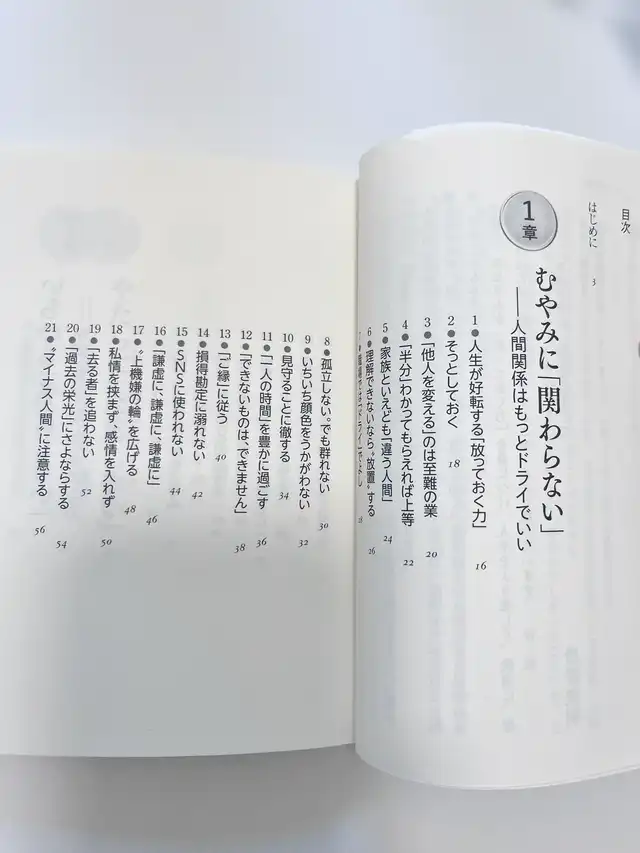 目次
はじめに 3
1章
むやみに「関わらない」
──人間関係はもっとドライでいい
1●人生が好転する「放っておく力」 16
2●そっとしておく 18
3●「他人を変える」のは至難の業 20
4●「半分」わかってもらえれば上等 22
5●家族といえども「違う人間」 24
6●理解できないなら〝放置〟する 26
8●孤立しない。でも群れない 30
9●いちいち顔色をうかがわない 32
10●見守ることに徹する 34
11●「一人の時間」を豊かに過ごす 36
12●「できないものは、できません」 38
13●「ご縁」に従う 40
14●損得勘定に溺れない 42
15●SNSに使われない 44
16●「謙虚に、謙虚に、謙虚に」 46
17●〝上機嫌の輪〟を広げる 48
18●私情を挟まず、感情を入れず 50
19●「去る者」を追わない 52
20●「過去の栄光」にさよならする 54
21●〝マイナス人間〟に注意する 56